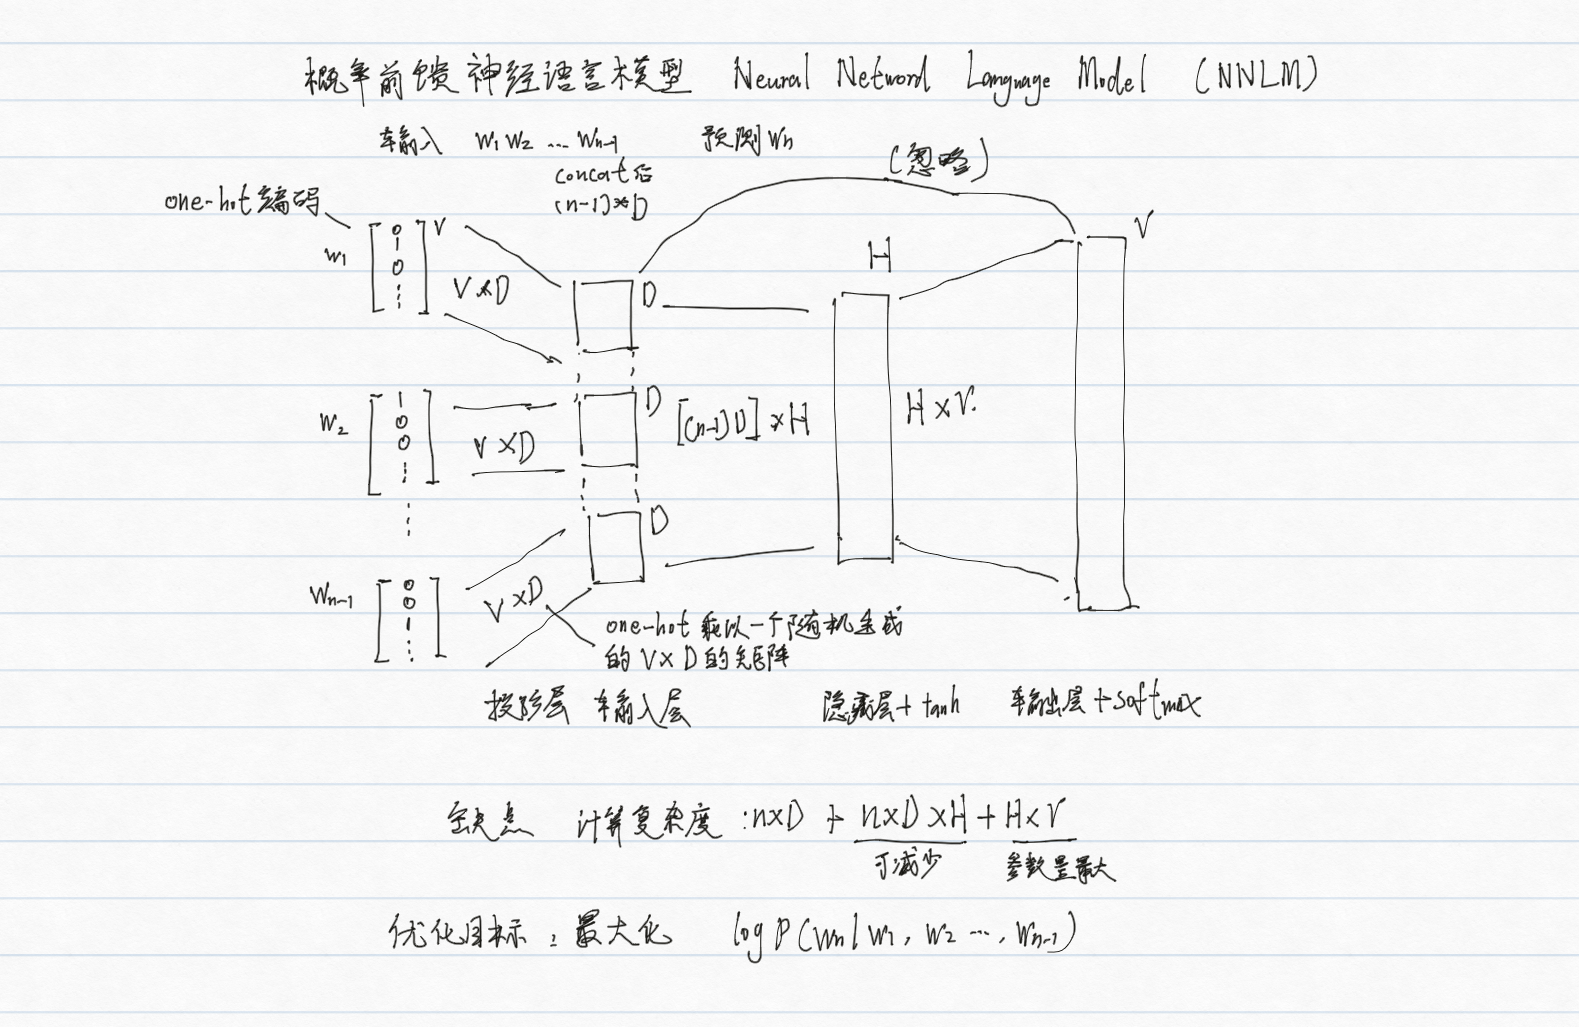 概率前馈神经语言模型 Neural Netword Language Model (NNLM)
输入 W1 W2 ... Wn-1 预测 Wn
(忽略)
concat后
(n-1)*D
one-hot 编码
W1
0
1
0
⋮
V
V×D
D
H
V
W2
1
0
0
⋮
V×D
D
[(n-1)D]×H
H×V
⋮
Wn-1
0
0
1
⋮
V×D
D
one-hot 乘以一个随机生成
的 V×D 的矩阵
投影层 输入层 隐藏层+tanh 输出层+softmax
缺点 计算复杂度:n×D + n×D×H + H×V
可减少 参数量最大
优化目标: 最大化 log P(Wn|W1, W2 ..., Wn-1)